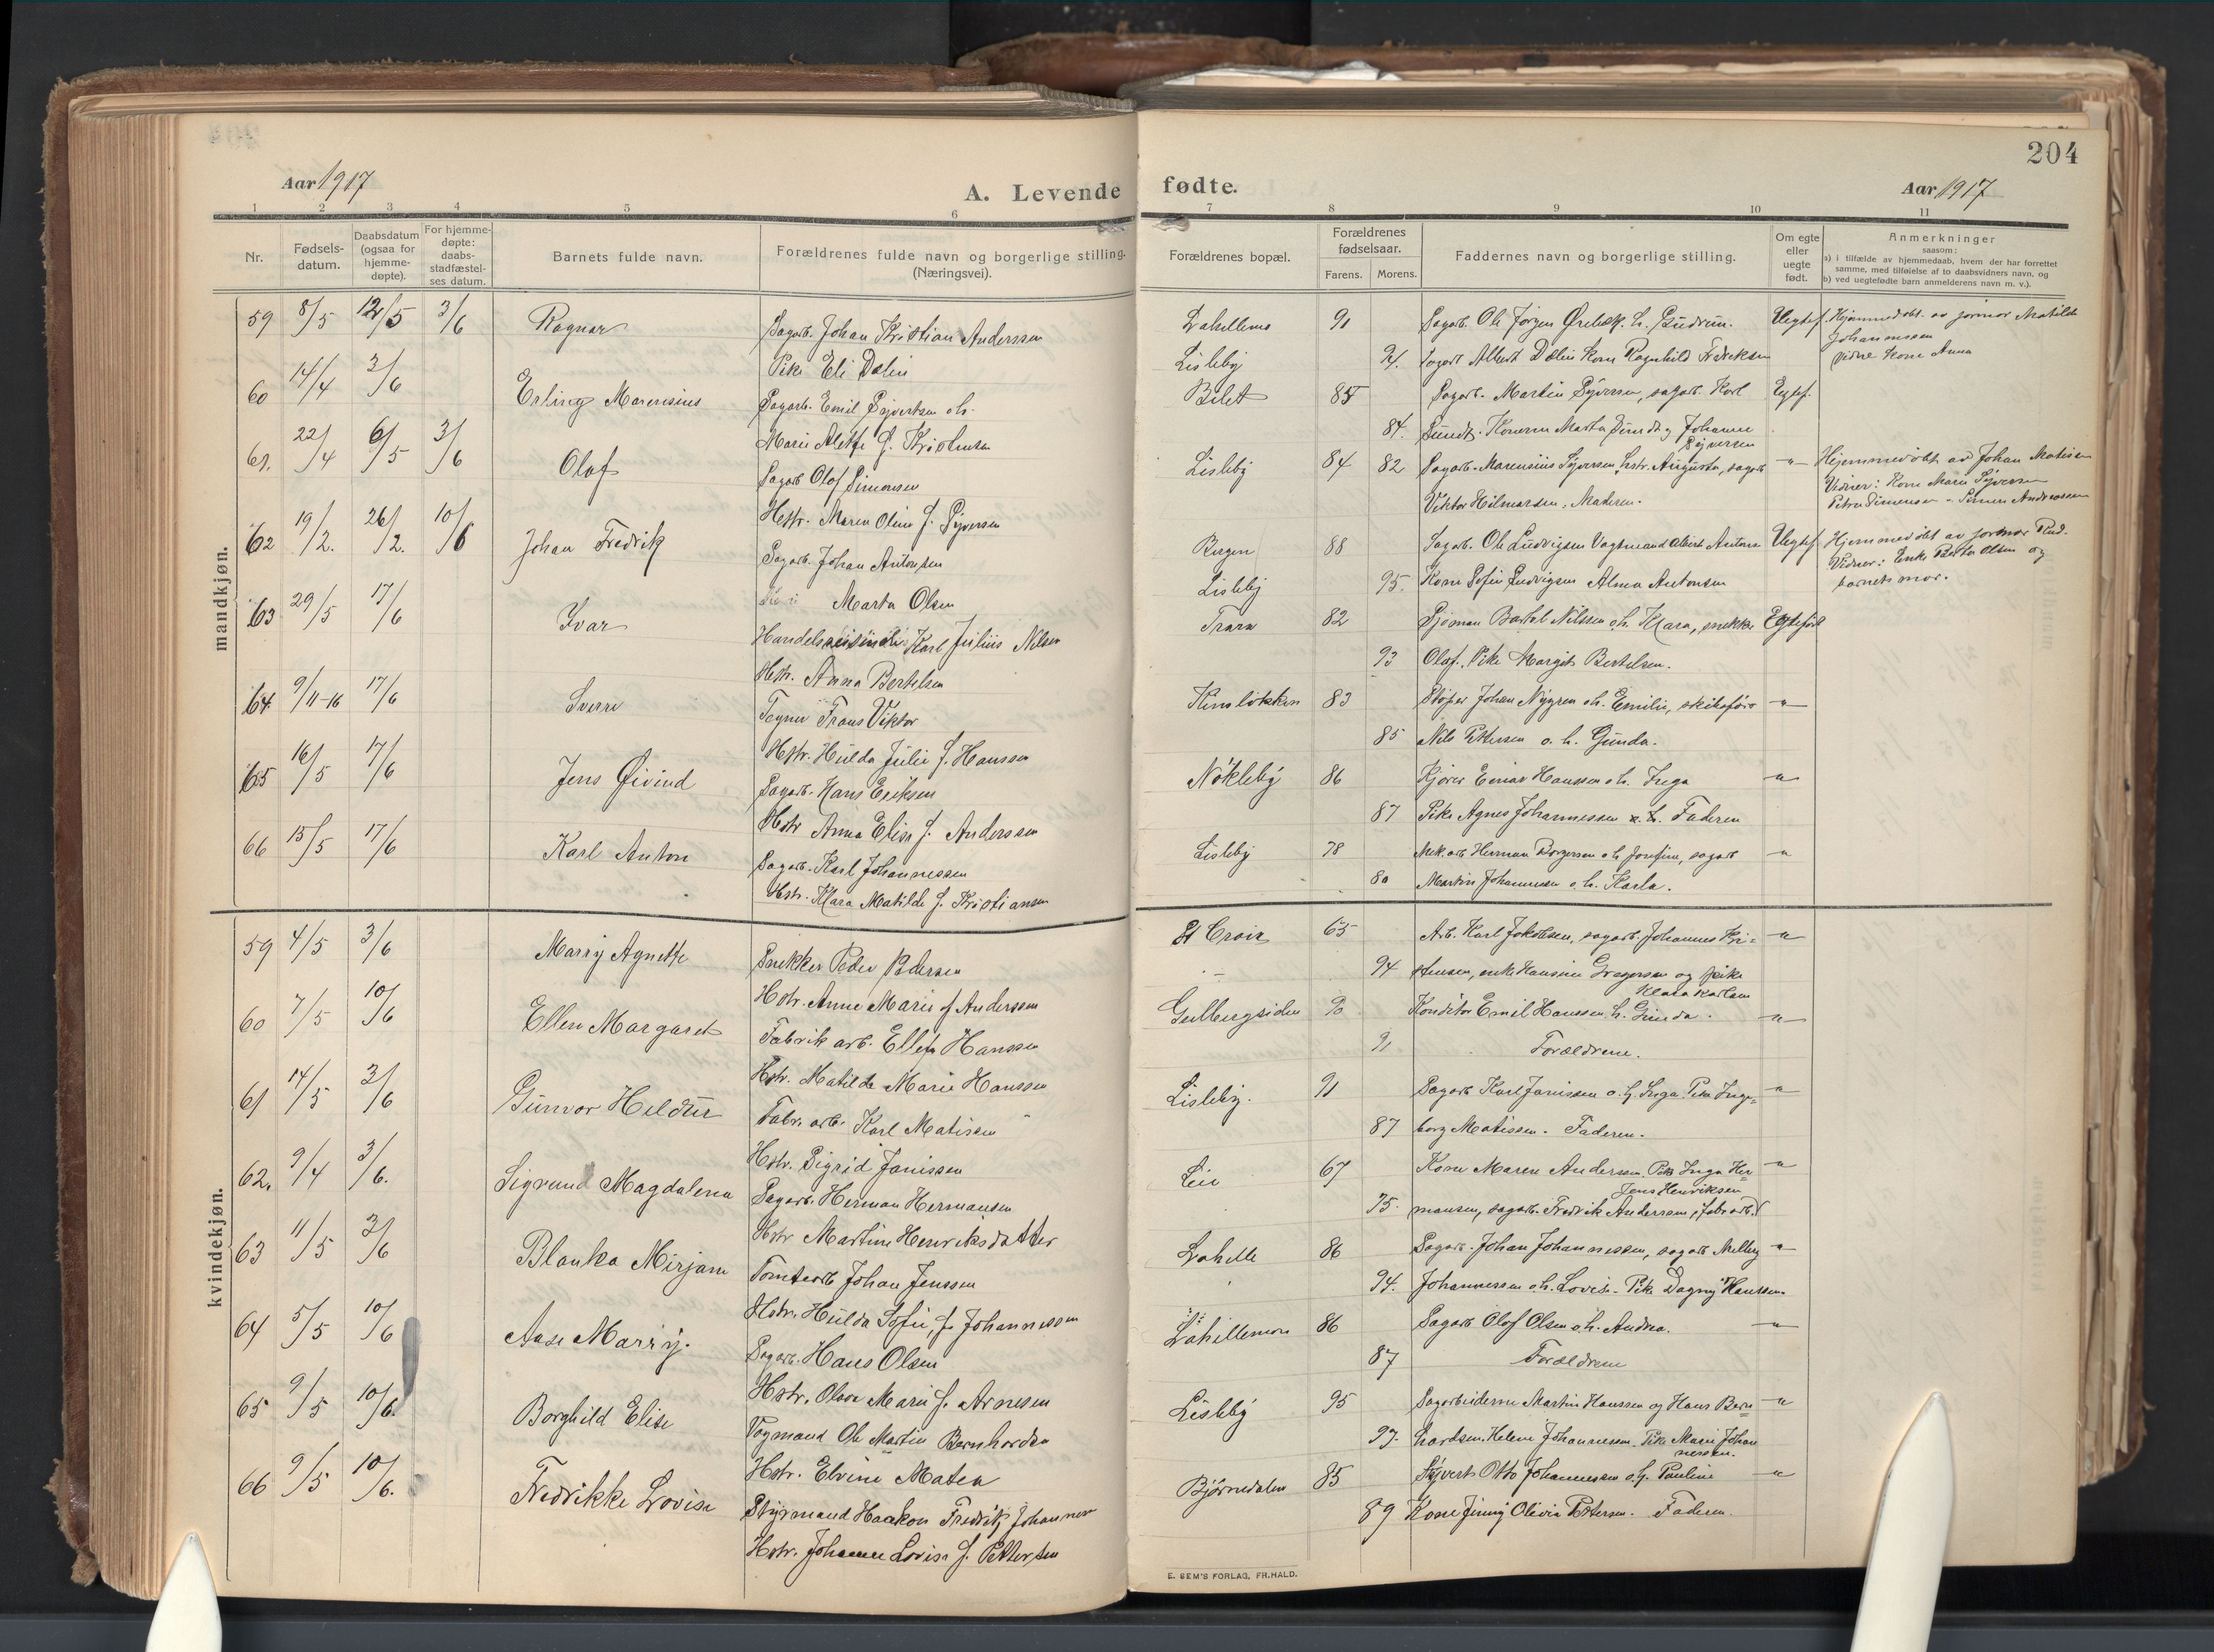 204
Aar 1917
A. Levende fødte.
Aar 1917
1 2 3 4 5 6 7 8 9 10 11
Nr.
Fødsels-
datum.
Daabsdatum
(ogsaa for
hjemme-
døpte).
For hjemme-
døpte:
daabs-
stadfæstel-
ses datum.
Barnets fulde navn.
Forældrenes fulde navn og borgerlige stilling.
(Næringsvei).
Forældrenes bopæl.
Forældrenes
fødselsaar.
Farens. Morens.
Faddernes navn og borgerlige stilling.
Om egte
eller
uegte
født.
Anmerkninger
saasom:
a) i tilfælde av hjemmedaab, hvem der har forrettet
samme, med tilføielse af to daabsvidners navn, og
b) ved uegtefødte barn anmelderens navn m. v.).
mandkjøn.
59 8/5 12/5 3/6 Ragnar Sagarb. Johan Kristian Anderssen Lahellemo 91 Sagarb. Ole Jørgen h. Gudrun. Uegtef. Hjemmedøbt. av jormor Matilde
Johannessen
Pike Eli Dalin Lisleby 94. Sagarb Albert Dalin Kone Ragnhild Fredriksen vidne Kone Anna
60 14/4 3/6 Erling Marensius Sagarb. Emil Syvertsen o.h. Bilet 85 Sagarb. Martin Syversen, sagarb. Karl Egtef.
Marie Alette f. Kristensen 84. Sundt. Konerne Marta Sundt og Johanne
Syversen
61. 22/4 6/5 3/6 Olaf Sagarb Olaf Simonsen Lisleby 84 82 Sagarb. Marensius Syversen, hstr. Augusta, sagarb —"— Hjemmedøbt av Johan Matisen
Hstr. Maren Oline f. Syversen Viktor Hilmarsen, Moderen. Vidner: Kone Marie Syversen
Petra Simensen
62 19/2. 26/2. 10/6 Johan Fredrik Sagarb. Johan Antonsen Bergen 88 Sagarb. Ole Ludvigsen Vagtmand Albert Antons Uegtef Hjemmedøbt av jormor Rud.
Vidner: Enke Berta Olsen og
Marta Olsen Lisleby 95. Kone Sofie Ludvigsen Alma Antonsen barnets mor.
63 29/5 17/6 Ivar Handelsreisende Karl Julius Nilsen Trara 82 Sjøman Bertel Nilssen o.h. Klara, snekker Egtefød
Hstr. Anna Bertelsen 93 Olaf. Pike Margit Bertelsen.
64. 9/11-16 17/6 Sverre Tegner Frans Viktor 83 Støper Johan Nygren o.h. Emilie, skibsfører —"—
Hstr. Hulda Julie f. Hansen 85 Nils Pettersen o. h. Gunda.
65 16/5 17/6 Jens Øivind Sagarb. Hans Eriksen Nøkleby 86 Kjører Einar Hanssen o.h. Inga —"—
Hstr Anna Elise f. Anderssen 87 Pike Agnes Johannessen Faderen
66 15/5 17/6 Karl Anton Sagarb. Karl Johannessen Lisleby 78 Mek. arb Herman Borgersen o.h. Josefine, sagarb —"—
Hstr. Klara Matilde f. Kristiansen 80 Martin Johannessen o.h. Karla.
kvindekjøn.
59 4/5 3/6 Marry Agnethe Snekker Peder Pedersen St Croix 65 Arb. Karl Jakobsen, sagarb. Johannes Kri= —"—
Hstr. Anne Marie f Anderssen 94 stensen, enke Hansine Gregersen og pike
Klara Karlsen
60 7/5 10/6 Ellen Margaret Fabrik arb. Hanssen Gulbergsiden 90 Konditor Emil Hanssen h. Gunda. —"—
Hstr. Matilde Marie Hanssen 91 Forældrene.
61 14/5 3/6 Gunvor Hildur Fabr. arb. Karl Matisen Lisleby. 91 Sagarb Karl Janissen o.h. Inga Pike Inge= —"—
Hstr. Sigrid Janissen 87 borg Matissen. Faderen.
62. 9/4 3/6. Sigrund Magdalena Sagarb. Herman Hermansen Lie 67 Kone Maren Andersen. Pike Inga Her= —"—
Jens Henriksen
Hstr Martine Henriksdatter 75. mansen, sagarb. Fredrik Anderssen, fabr arb.
63 11/5 3/6 Blanka Mirjam Tomtearb Johan Jenssen Lahelle 86 Sagarb. Johan Johannessen, sagarb —"—
Hstr. Hulda Sofie, f. Johannessen 94. Johannessen o.h. Lovise. Pike Dagny Hanssen.
64 5/5 10/6 Aase Marry. Sagarb. Hans Olsen Lahellemoen 86 Sagarb Olaf Olsen o.h. Andrea. —"—
Hstr. Olava Marie f. Arnesen 87 Forældrene
65 9/5 10/6. Borghild Elise Vognmand Ole Martin Bernhardsen Lisleby 95 Sagarbeiderne Martin Hanssen og Hans Bern= —"—
Hstr. Elvine Matea 97. hardsen. Helene Johannessen. Pike Marie Johan
nessen.
66 9/5 10/6. Fredrikke Lovise Styrmand Haakon Fredrik Johannes Bjørnedalen 85 Otto Johannessen o.h. Pauline —"—
Hstr. Johanne Lovise f. Pettersen 89 Kone Jenny Olivia Pettersen. Faderen.
E. SEM'S FORLAG, FR.HALD.